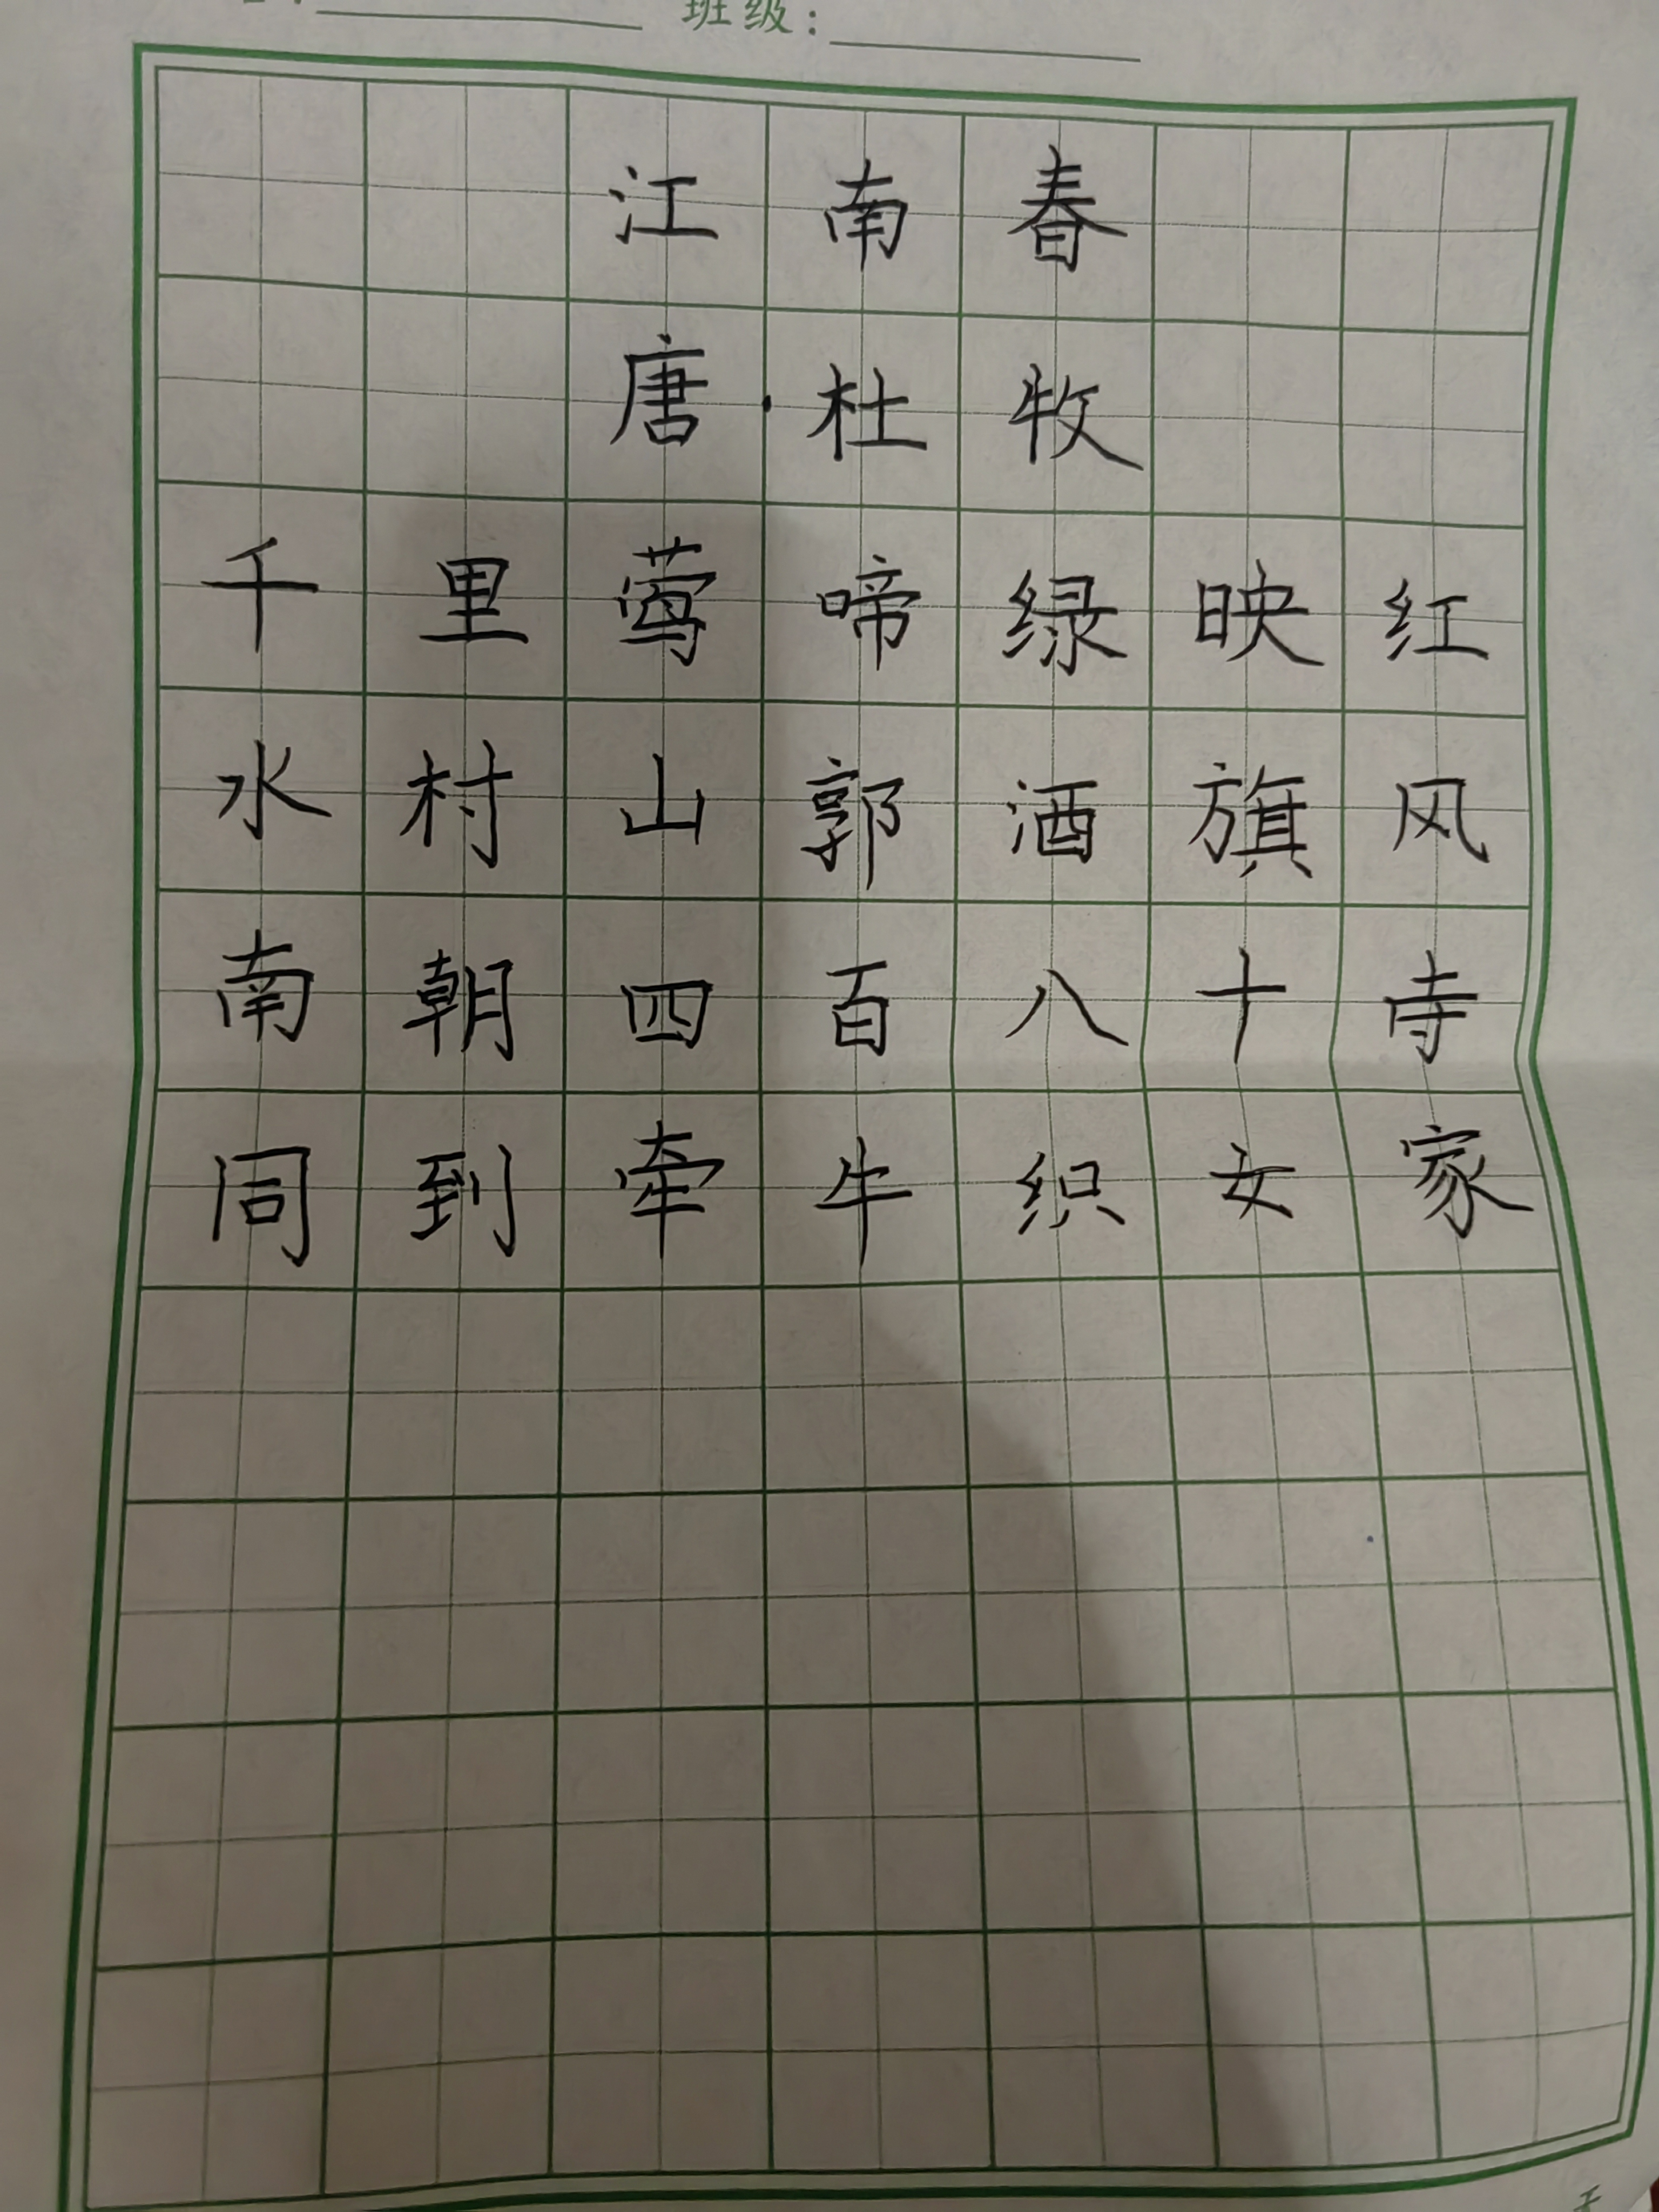 班级:
江南春
唐·杜牧
千里莺啼绿映红
水村山郭酒旗风
南朝四百八十寺
同到牵牛织女家